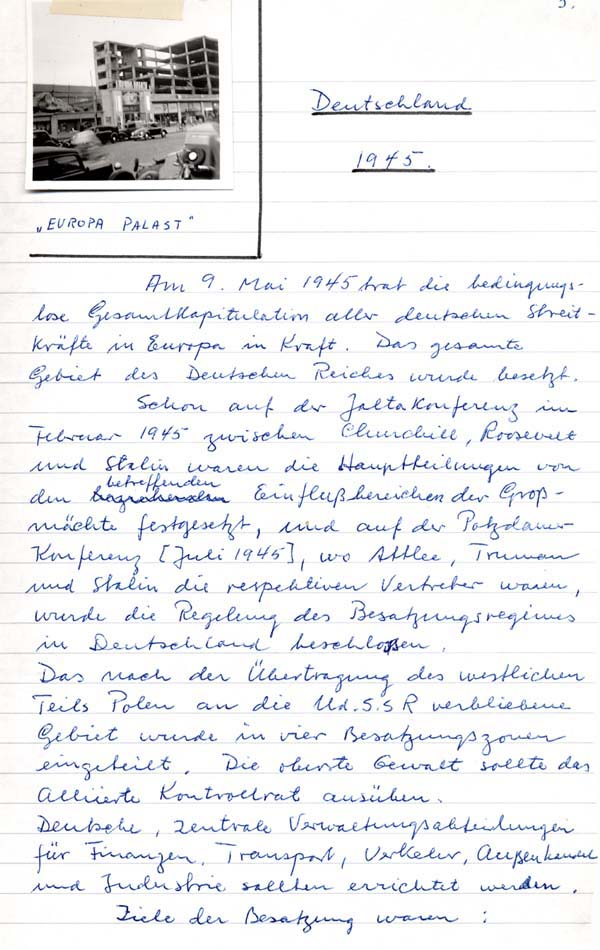 5.
Deutschland
1945.
„EUROPA PALAST"
Am 9. Mai 1945 trat die bedingungs-
lose Gesamtkapitulation aller deutschen Streit-
kräfte in Europa in Kraft. Das gesamte
Gebiet des Deutschen Reiches wurde besetzt.
Schon auf der Jaltakonferenz im
Februar 1945 zwischen Churchill, Roosevelt
und Stalin waren die Hauptteilungen von
betreffenden
den Einflußbereichen der Groß-
mächte festgesetzt, und auf der Potzdamer
Konferenz [Juli 1945], wo Attlee, Truman
und Stalin die respektiven Vertreter waren,
wurde die Regelung des Besatzungsregimes
in Deutschland beschloßen.
Das nach der Übertragung des westlichen
Teils Polen an die Ud.S.S R verbliebene
Gebiet wurde in vier Besatzungszonen
eingeteilt. Die oberste Gewalt sollte das
Alliierte Kontrollrat ausüben.
Deutsche, zentrale Verwaltungsabteilungen
für Finanzen, Transport, Verkehr, Außenhandel
und Industrie sollten errichtet werden.
Ziele der Besatzung waren :